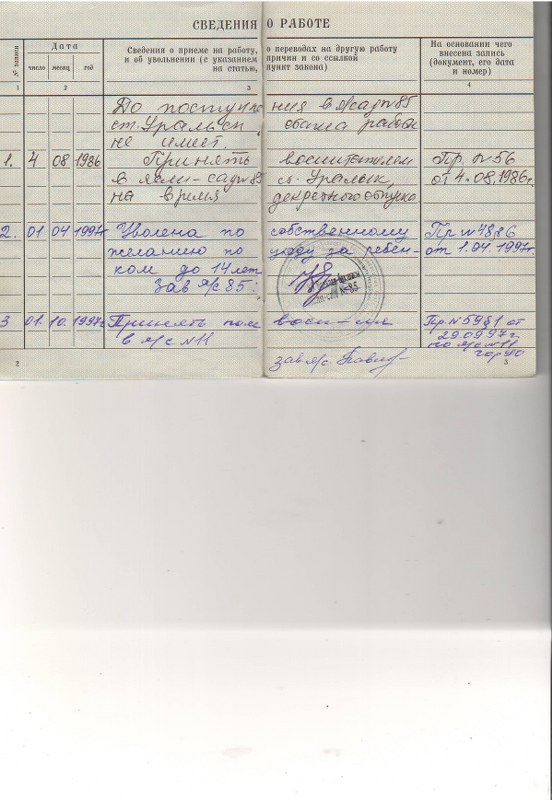 СВЕДЕНИЯ О РАБОТЕ
№ записи
Дата
число месяц год
Сведения о приеме на работу, о переводах на другую работу
и об увольнении (с указанием причин и со ссылкой
на статью, пункт закона)
На основании чего
внесена запись
(документ, его дата
и номер)
1 2 3 4
До поступления в я/сад №85
ст. Уральск стажа работы
не имеет.
1. 4 08 1986 Принять воспитателем Пр. №56
в ясли-сад №85 ст. Уральск, от 4.08.1986г.
на время декретного отпуска
2. 01 04 1997г Уволена по собственному Пр №48§6
желанию по уходу за ребён- от 1.04 1997г.
ком до 14 лет
Зав я/с 85:
№85
3 01. 10. 1997г Принять пом восп-ля Пр. №59§1 от
в я/с №11 29.09.97г
по я/с №11
зав я/с
2 3